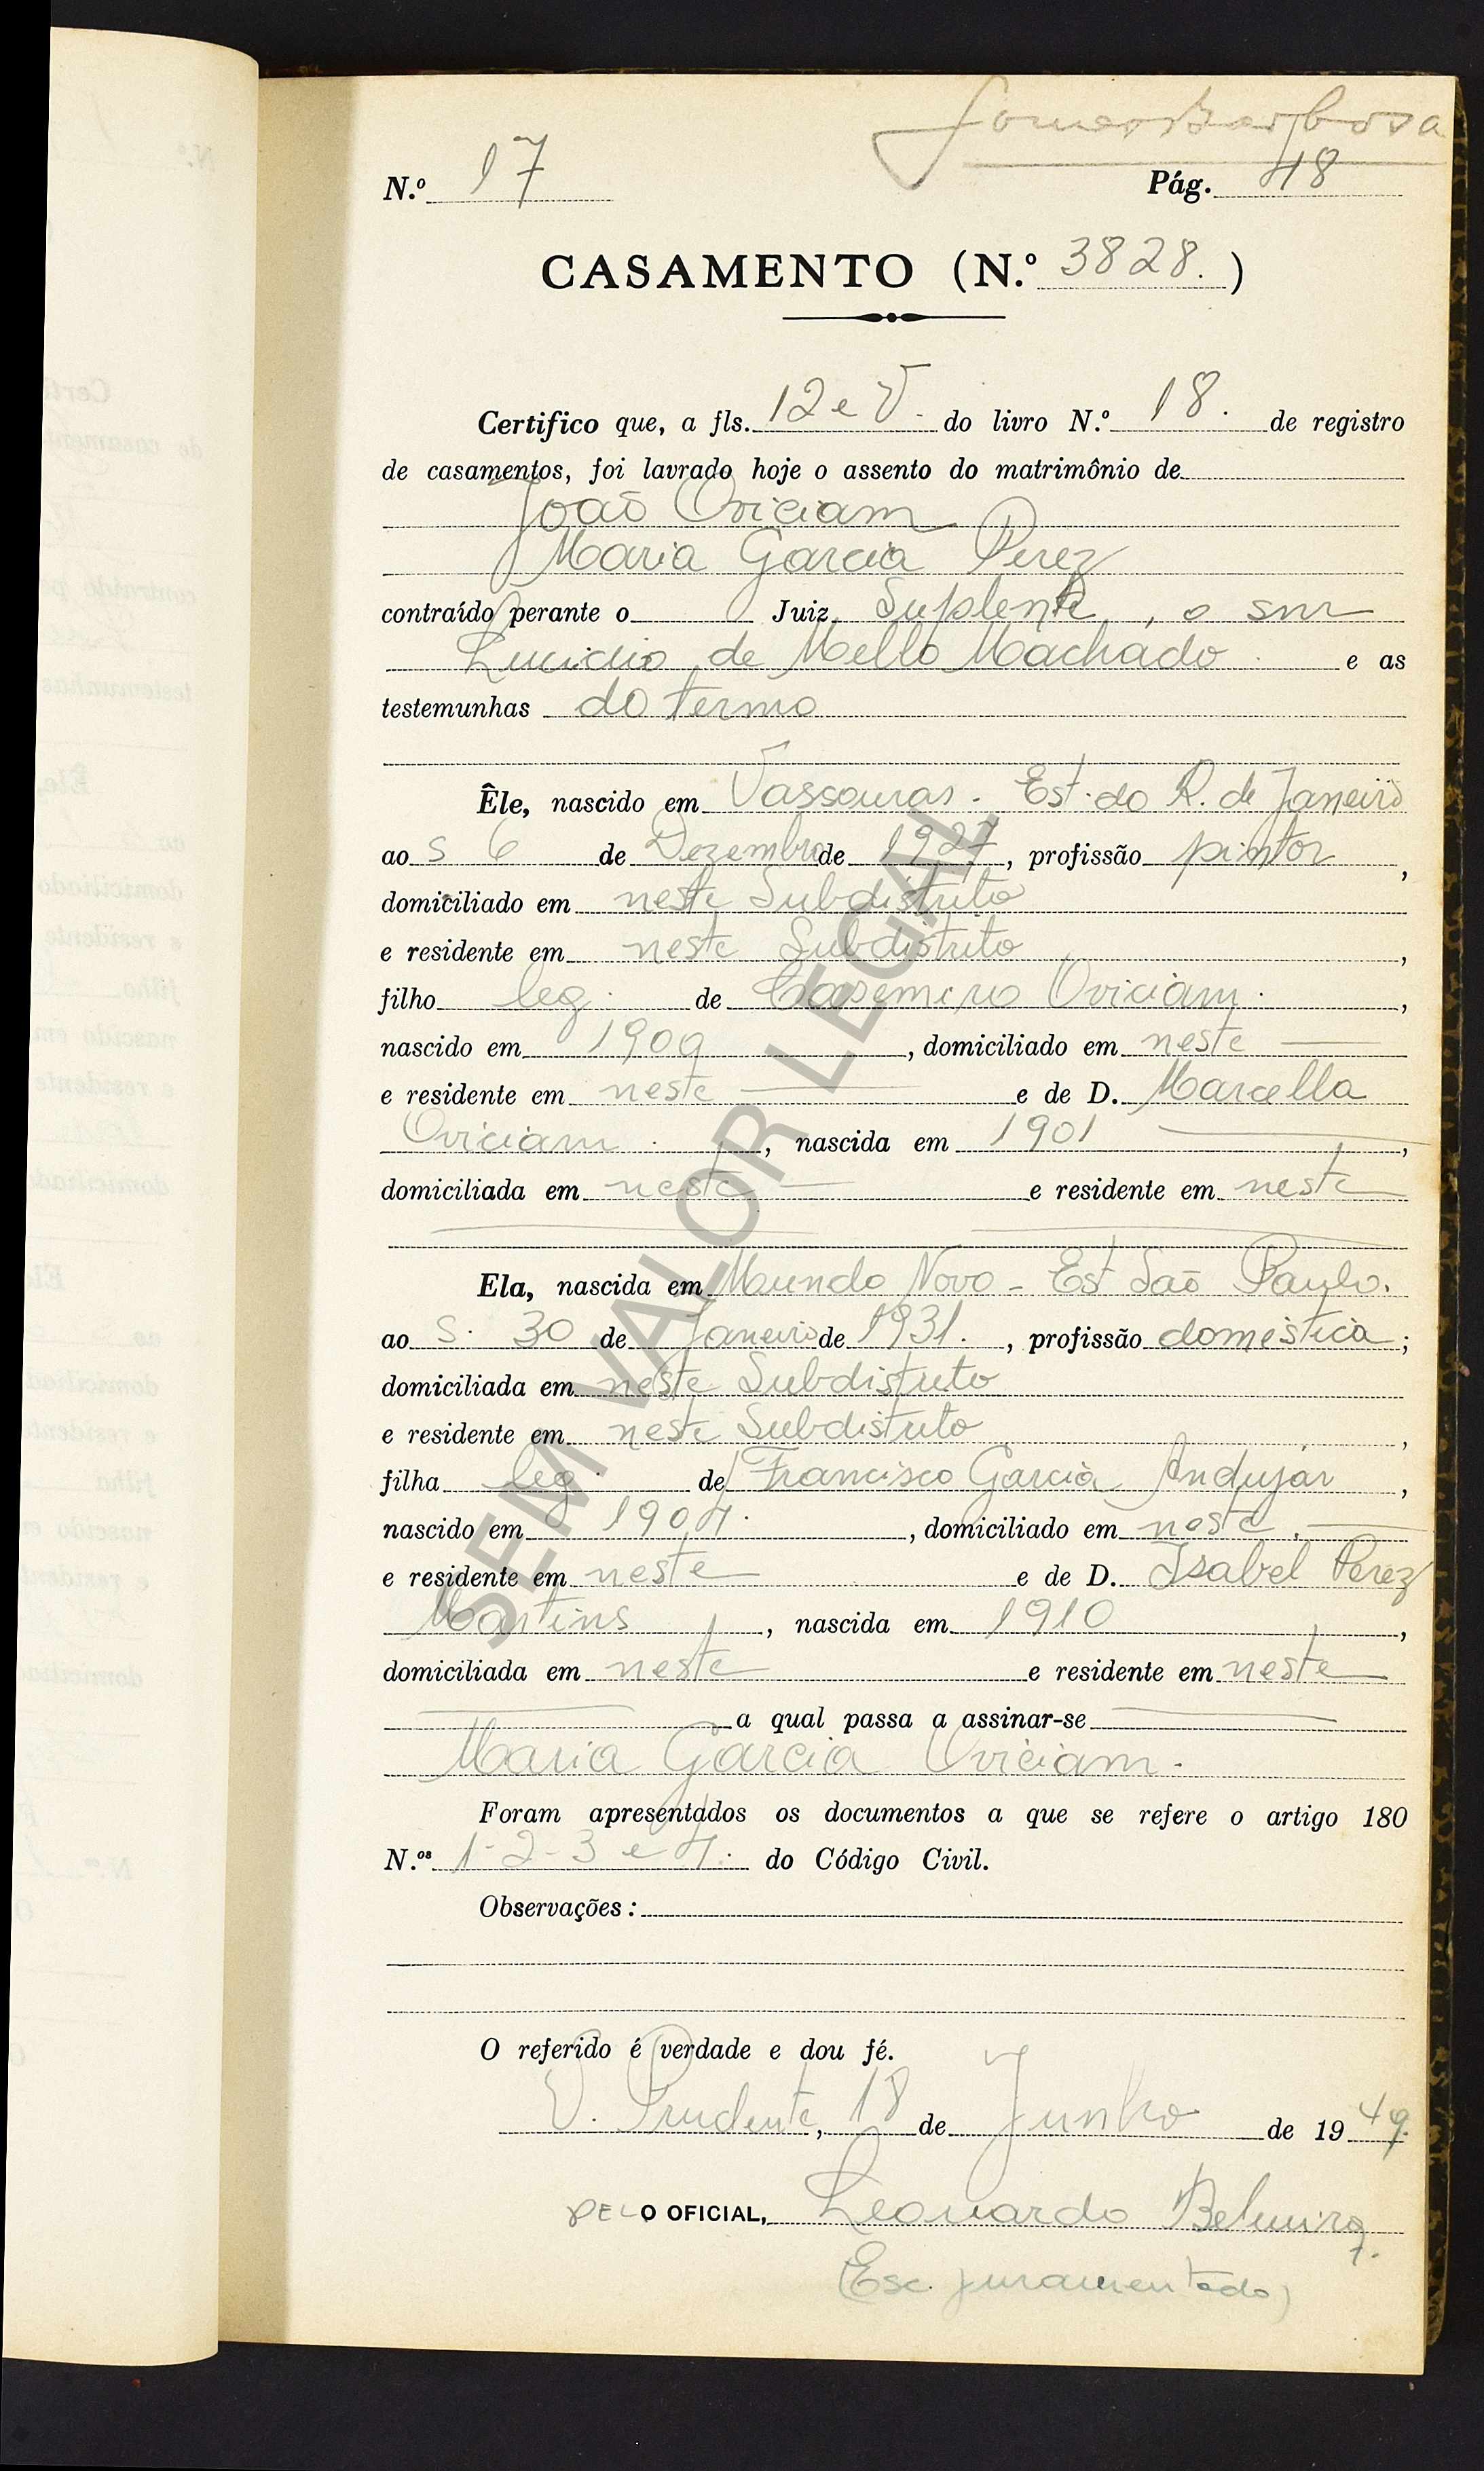 Gomes Barbosa
N.º 17 Pág. 48
CASAMENTO (N.º 3828.)
Certifico que, a fls. 12 e V. do livro N.º 18. de registro
de casamentos, foi lavrado hoje o assento do matrimônio de
João Oviciam
Maria Garcia Perez
contraído perante o Juiz Suplente, o snr
Lucidio de Mello Machado e as
testemunhas do termo
Êle, nascido em Vassouras - Est. do R. de Janeiro
ao s 6 de Dezembro de 1927, profissão pintor,
domiciliado em neste Subdistrito
e residente em neste Subdistrito,
filho leg. de Casemiro Oviciam.,
nascido em 1909, domiciliado em neste
e residente em neste e de D. Marcella
Oviciam., nascida em 1901,
domiciliada em neste e residente em neste
Ela, nascida em Mundo Novo - Est São Paulo.
ao s. 30 de Janeiro de 1931., profissão domestica;
domiciliada em neste Subdistrito
e residente em neste Subdistrito,
filha leg. de Francisco Garcia Andujar,
nascido em 1904., domiciliado em neste.
e residente em neste e de D. Isabel Perez
Martins, nascida em 1910,
domiciliada em neste e residente em neste
a qual passa a assinar-se
Maria Garcia Oviciam.
Foram apresentados os documentos a que se refere o artigo 180
N.os 1-2-3 e 4. do Código Civil.
Observações:
O referido é verdade e dou fé.
V. Prudente, 18 de Junho de 1949.
PELO OFICIAL, Leonardo Belmiro
(Esc. juramentado)
SEM VALOR LEGAL